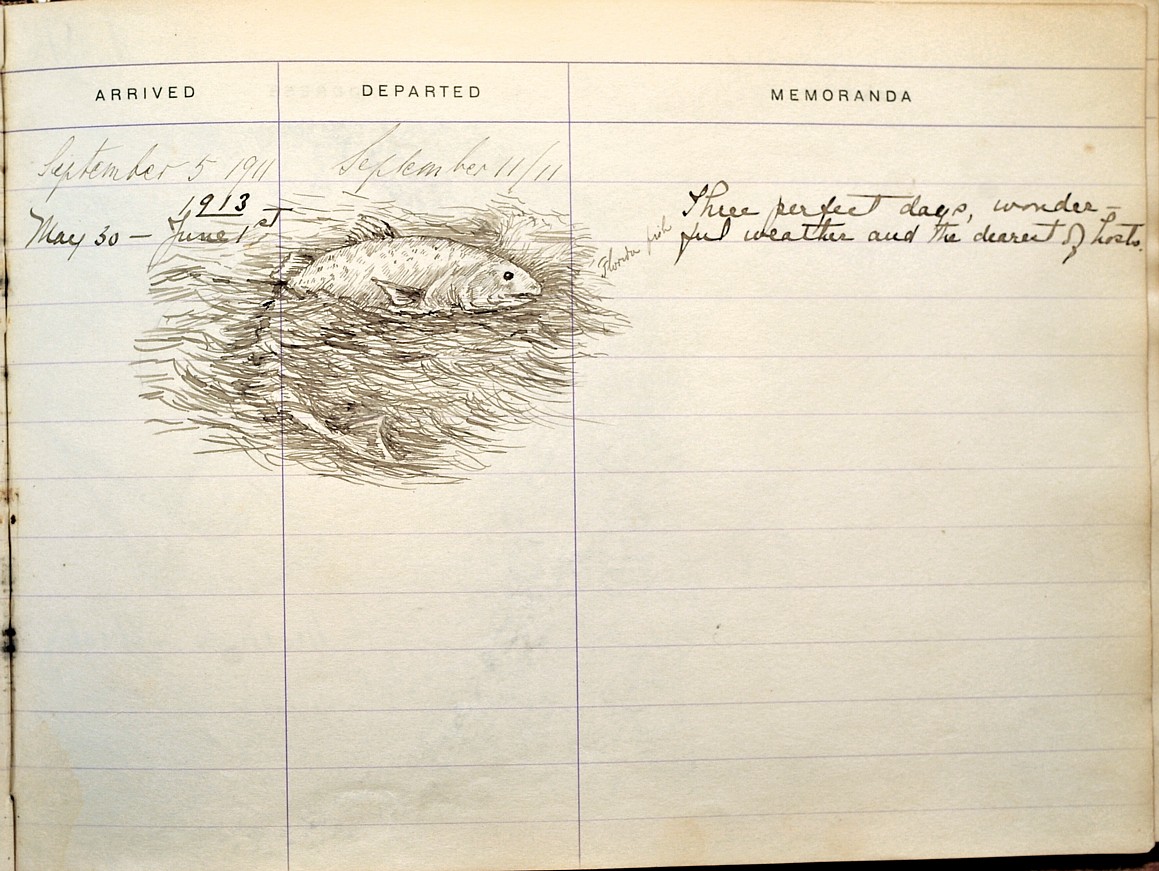 ARRIVED DEPARTED MEMORANDA
September 5 1911 September 11/11
1913
May 30 — June 1st
Three perfect days, wonder-
ful weather and the dearest of hosts.
Florida fish